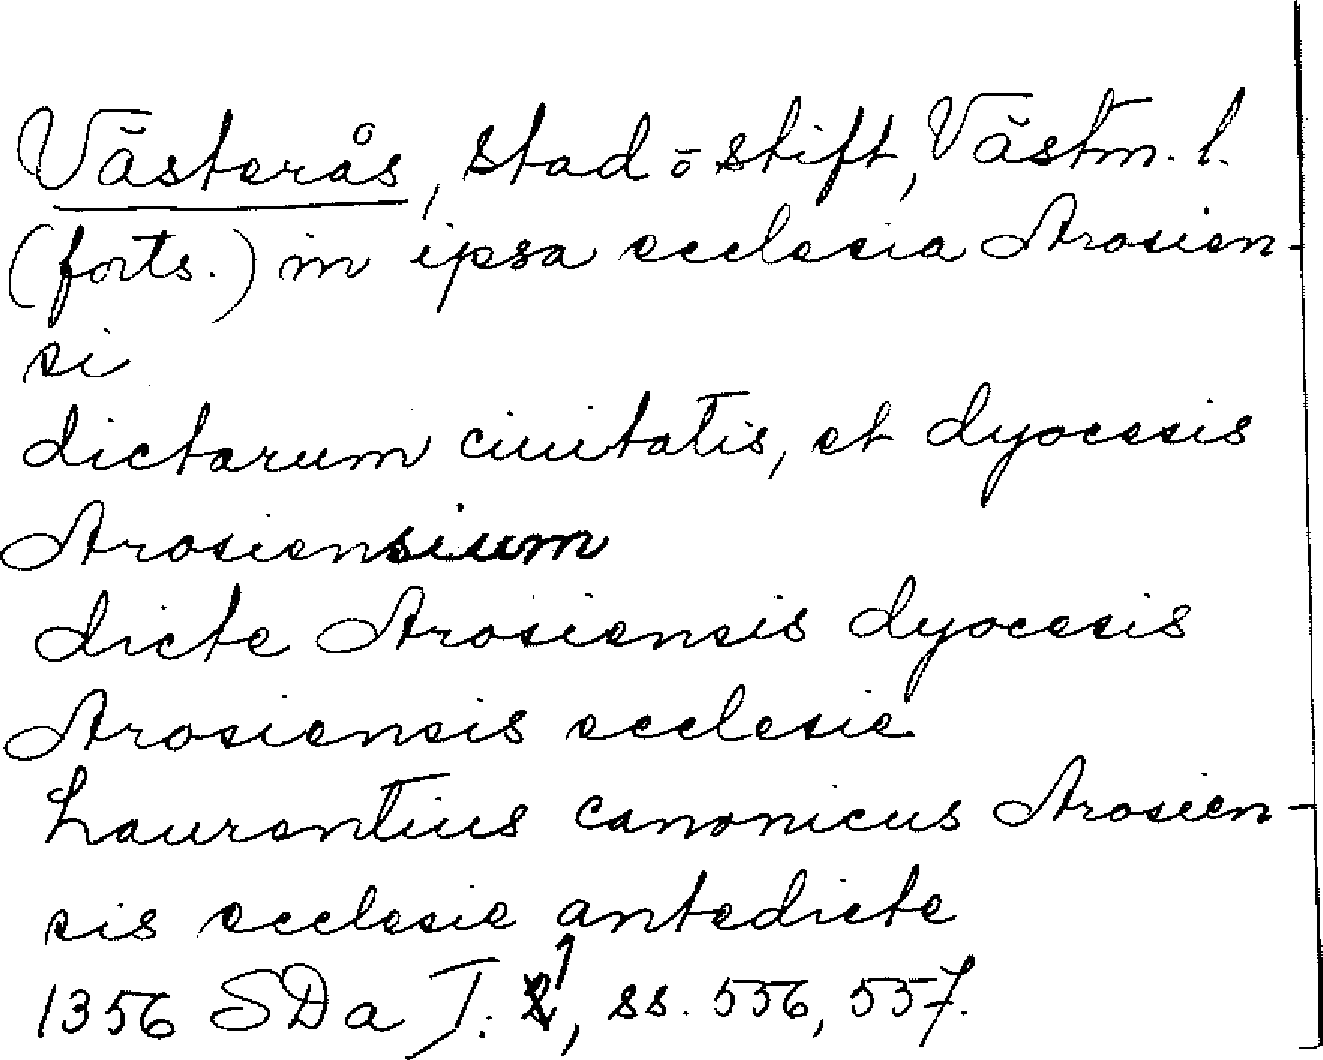 Västerås, stad o stift, Västm. l.
(forts.) in ipsa ecclesia Arosien-
si
dictarum ciuitatis, et dyocesis
Arosiensium
dicte Arosiensis dyocesis
Arosiensis ecclesie
Laurentius canonicus Arosien-
sis ecclesie antedicte
1356 SDa I: 1, ss. 556, 557.